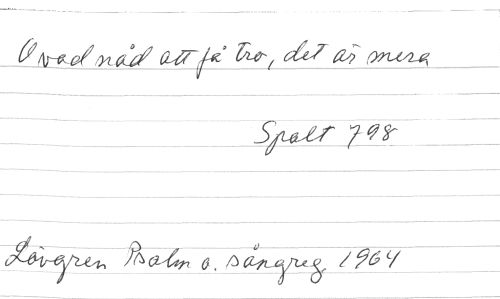 O vad nåd att få tro, det är mera
Spalt 798
Lövgren Psalm o. sångreg. 1964